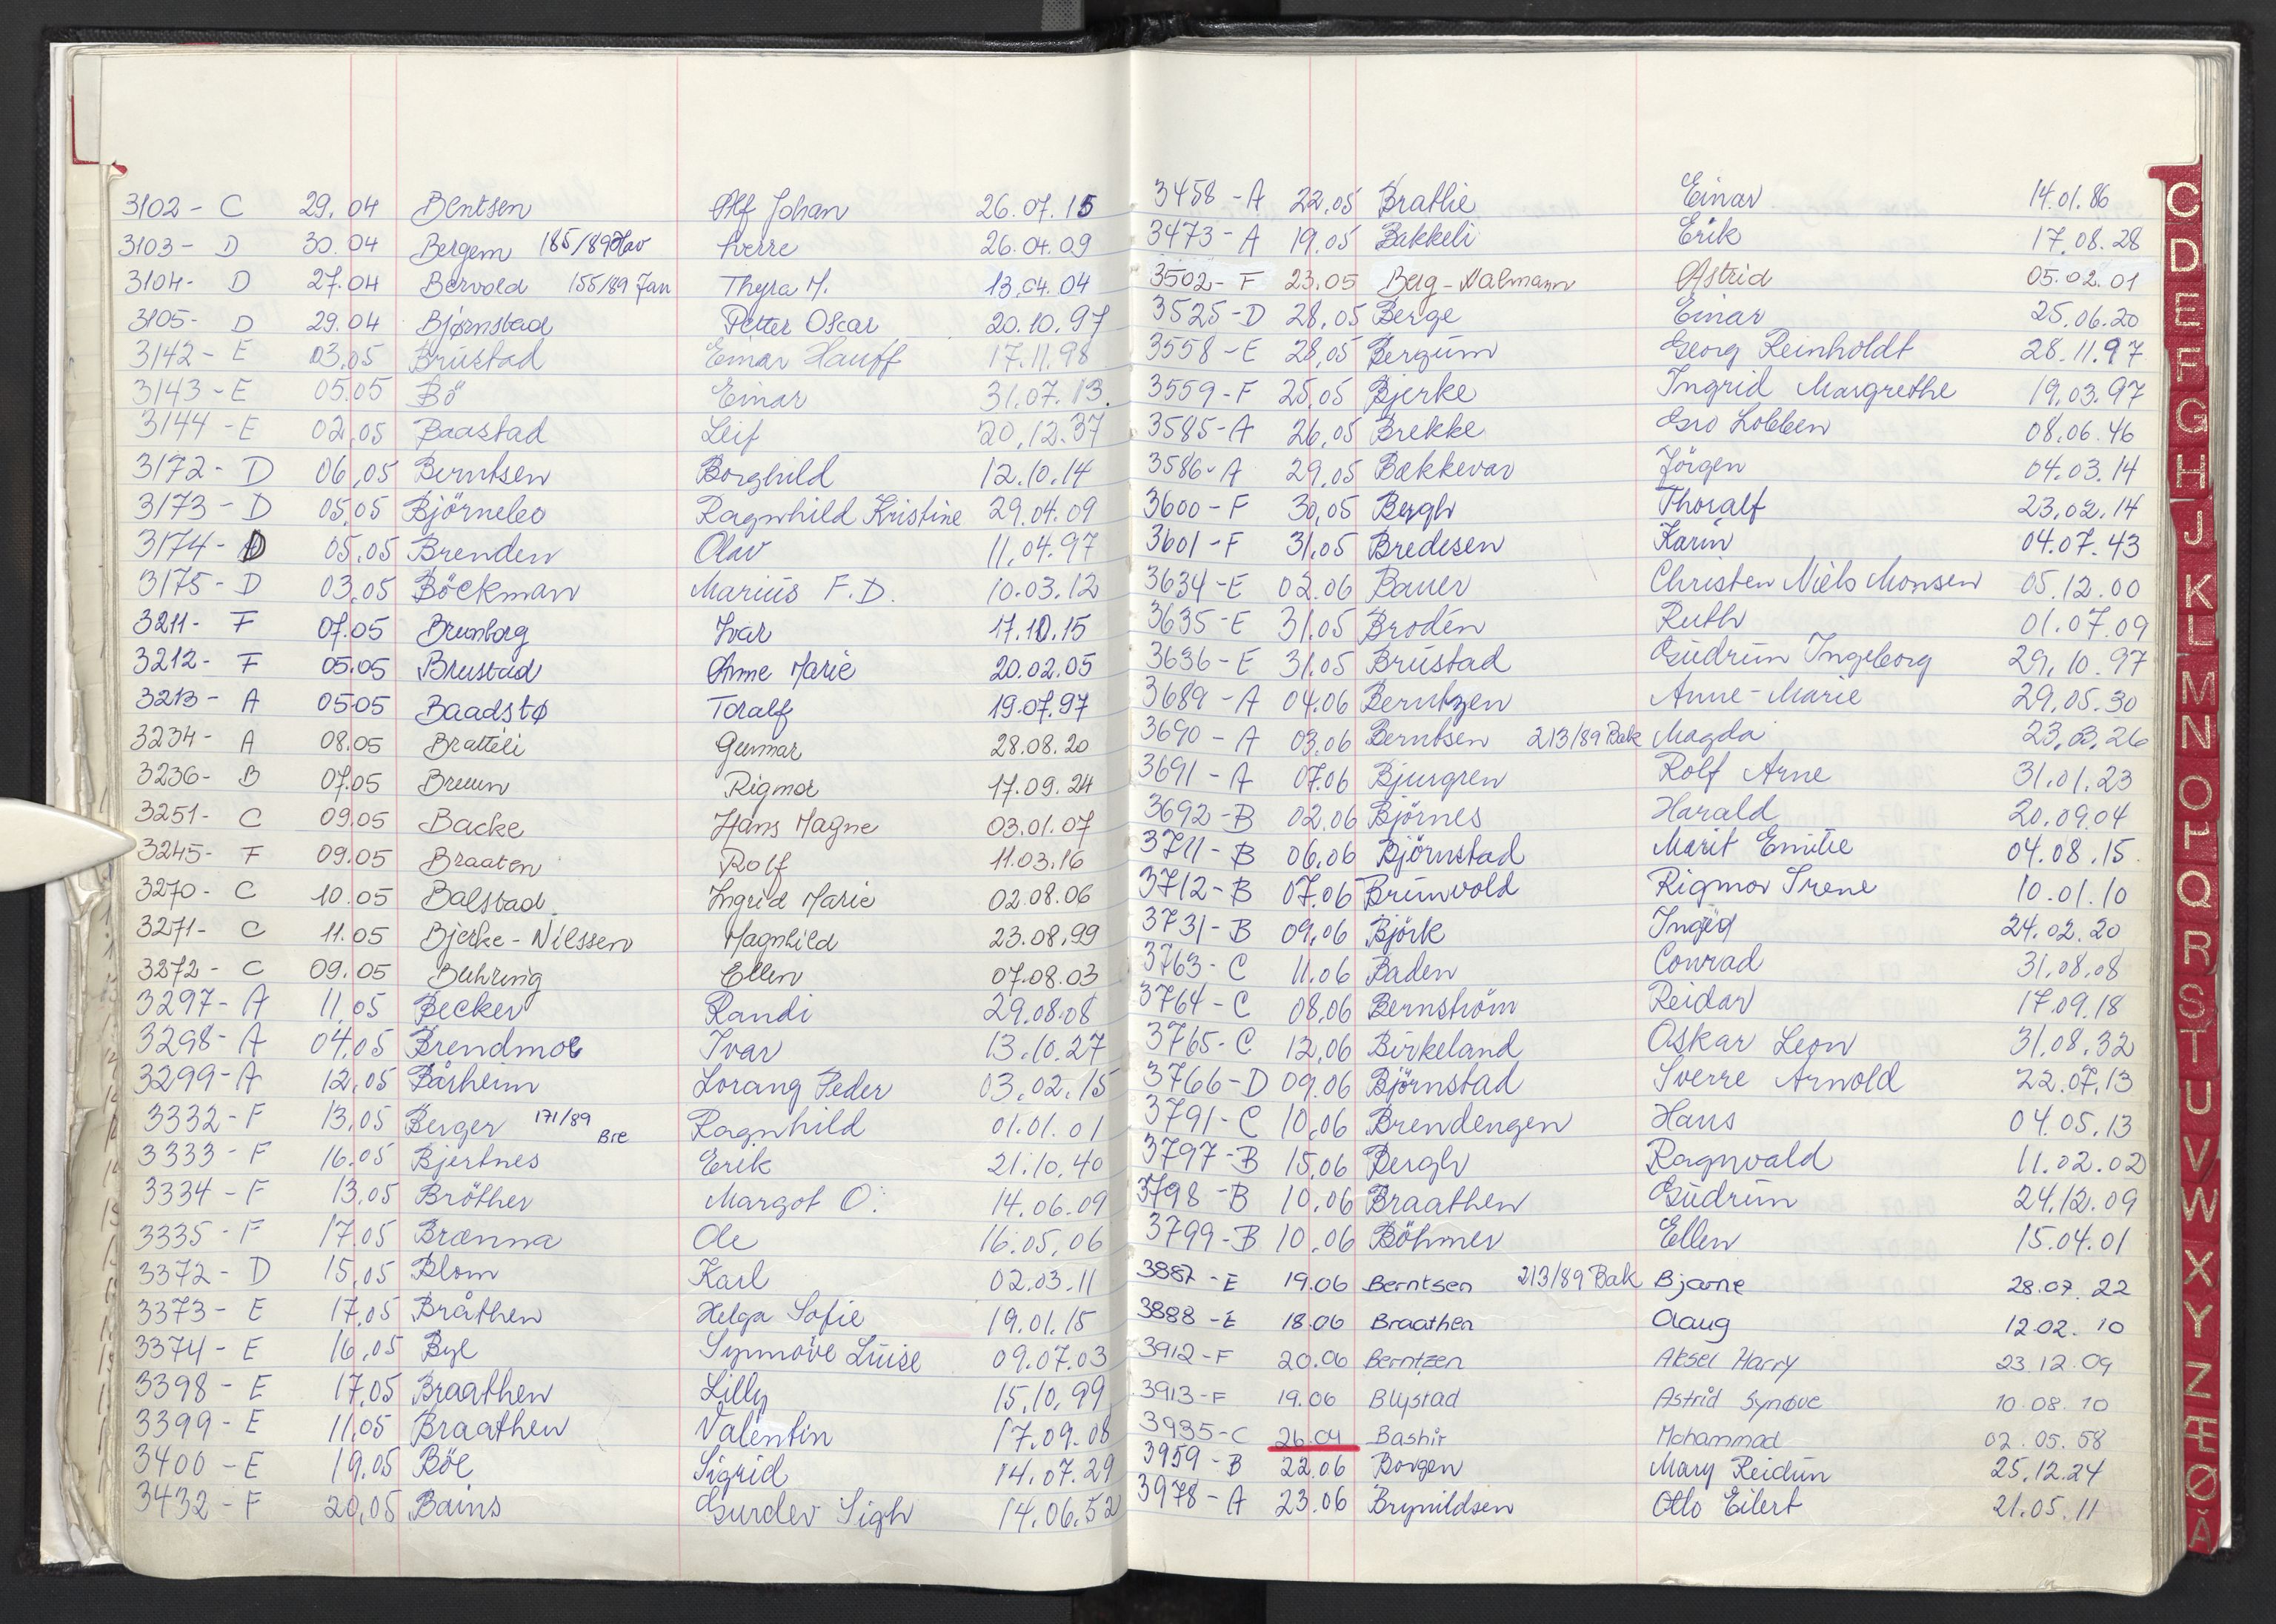 3102 - C 29.04 Bentsen Alf Johan 26.07.15
3103 - D 30.04 Bergem 185/89 Hov Sverre 26.04.09
3104 - D 27.04 Bervold 155/89 Jan Thyra M. 13.04.04
3105 - D 29.04 Bjørnstad Petter Oscar 20.10.97
3142 - E 03.05 Brustad Einar Hauff 17.11.98
3143 - E 05.05 Bö Einar 31.07.13
3144 - E 02.05 Baastad Leif 20.12.37
3172 - D 06.05 Berntsen Borghild 12.10.14
3173 - D 05.05 Björnebo Ragnhild Kristine 29.04.09
3174 - D 05.05 Brenden Olav 11.04.97
3175 - D 03.05 Böckman Marius F.D. 10.03.12
3211 - F 07.05 Brunborg Ivar 17.10.15
3212 - F 05.05 Brustad Anne Marie 20.02.05
3213 - A 05.05 Baadstø Toralf 19.07.97
3234 - A 08.05 Bratteli Gunnar 28.08.20
3236 - B 07.05 Bruun Rigmor 17.09.24
3251 - C 09.05 Backe Hans Magne 03.01.07
3245 - F 09.05 Braaten Rolf 11.03.16
3270 - C 10.05 Balstad Ingrid Marie 02.08.06
3271 - C 11.05 Bjerke - Nilssen Magnhild 23.08.99
3272 - C 09.05 Buhring Ellen 07.08.03
3297 - A 11.05 Becker Randi 29.08.08
3298 - A 04.05 Brendmoe Ivar 13.10.27
3299 - A 12.05 Bårheim Lorang Peder 03.02.15
3332 - F 13.05 Berger 171/89 Bre Ragnhild 01.01.01
3333 - F 16.05 Bjertnes Erik 21.10.40
3334 - F 13.05 Bröther Margot O. 14.06.09
3335 - F 17.05 Brænna Ole 16.05.06
3372 - D 15.05 Blom Karl 02.03.11
3373 - E 17.05 Bråthen Helga Sofie 19.01.15
3374 - E 16.05 Bye Synnöve Luise 09.07.03
3398 - E 17.05 Braathen Lilly 15.10.99
3399 - E 11.05 Braathen Valentin 17.09.08
3400 - E 19.05 Böe Sigrid 14.07.29
3432 - F 20.05 Bains Gurdev Sigh 14.06.52
3458 - A 22.05 Brathie Einar 14.01.86
3473 - A 19.05 Bakkeli Erik 17.08.28
3502 - F 23.05 Berg - Valmann Astrid 05.02.01
3525 - D 28.05 Berge Einar 25.06.20
3558 - E 28.05 Bergum Georg Reinholdt 28.11.97
3559 - F 25.05 Bjerke Ingrid Margrethe 19.03.97
3585 - A 26.05 Brekke Gro Lobben 08.06.46
3586 - A 29.05 Bakkevar Jörgen 04.03.14
3600 - F 30.05 Bergh Thoralf 23.02.14
3601 - F 31.05 Bredesen Karin 04.07.43
3634 - E 02.06 Bauer Christen Niels Monsen 05.12.00
3635 - E 31.05 Broden Ruth 01.07.09
3636 - E 31.05 Brustad Gudrun Ingeborg 29.10.97
3689 - A 04.06 Berntzen Anne - Marie 29.05.30
3690 - A 03.06 Berntsen 213/89 Bak Magda 23.03.26
3691 - A 07.06 Bjurgren Rolf Arne 31.01.23
3692 - B 02.06 Björnes Harald 20.09.04
3711 - B 06.06 Björnstad Marit Emilie 04.08.15
3712 - B 07.06 Brunvold Rigmor Irene 10.01.10
3731 - B 09.06 Björk 24.02.20
3763 - C 11.06 Baden Conrad 31.08.08
3764 - C 08.06 Bernström Reidar 17.09.18
3765 - C 12.06 Birkeland Oskar Leon 31.08.32
3766 - D 09.06 Björnstad Sverre Arnold 22.07.13
3791 - C 10.06 Brendengen Hans 04.05.13
3797 - B 15.06 Bergh Ragnvald 11.02.02
3798 - B 10.06 Braathen Gudrun 24.12.09
3799 - B 10.06 Böhmer Ellen 15.04.01
3887 - E 19.06 Berntsen 213/89 Bak Bjarne 28.07.22
3888 - E 18.06 Braathen Aaug 12.02.10
3912 - F 20.06 Berntzen Aksel Harry 23.12.09
3913 - F 19.06 Blystad Astrid Synøve 10.08.10
3935 - C 26.04 Bashir Mohammad 02.05.58
3959 - B 22.06 Borgen Mary Reidun 25.12.24
3978 - A 23.06 Brynildsen Otto Eilert 21.05.11
C
D
E
F
G
H
J
K
L
M
N
O
P
Q
R
S
T
U
V
W
X
Y
Z
Æ
Ø
Å